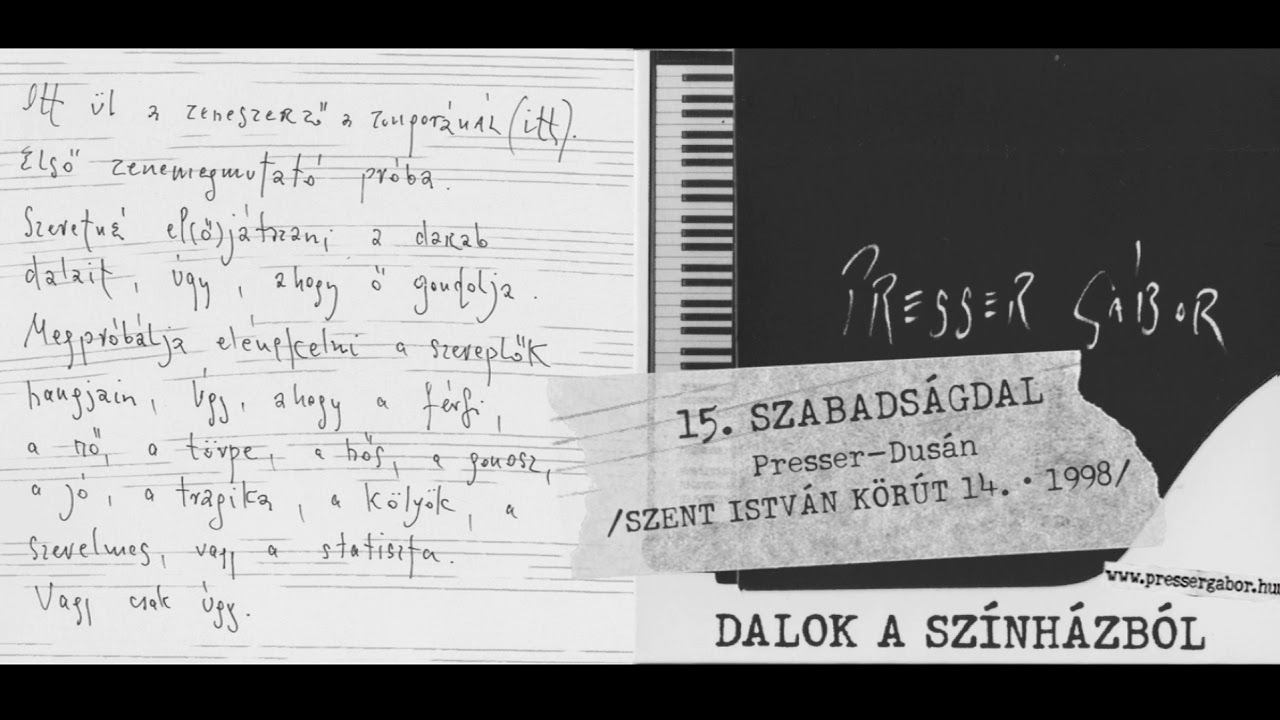 Itt ül a zeneszerző a zongoránál (itt).
Első zenemegmutató próba.
Szeretné el(ő)játszani a darab
dalait, úgy, ahogy ő gondolja.
Megpróbálja elénekelni a szereplők
hangjain, úgy, ahogy a férfi,
a nő, a törpe, a hős, a gonosz,
a jó, a tragika, a kölyök, a
szerelmes, vagy a statiszta.
Vagy csak úgy.
PRESSER GÁBOR
15. SZABADSÁGDAL
Presser-Dusán
/SZENT ISTVÁN KÖRÚT 14. • 1998/
www.pressergabor.hu
DALOK A SZÍNHÁZBÓL